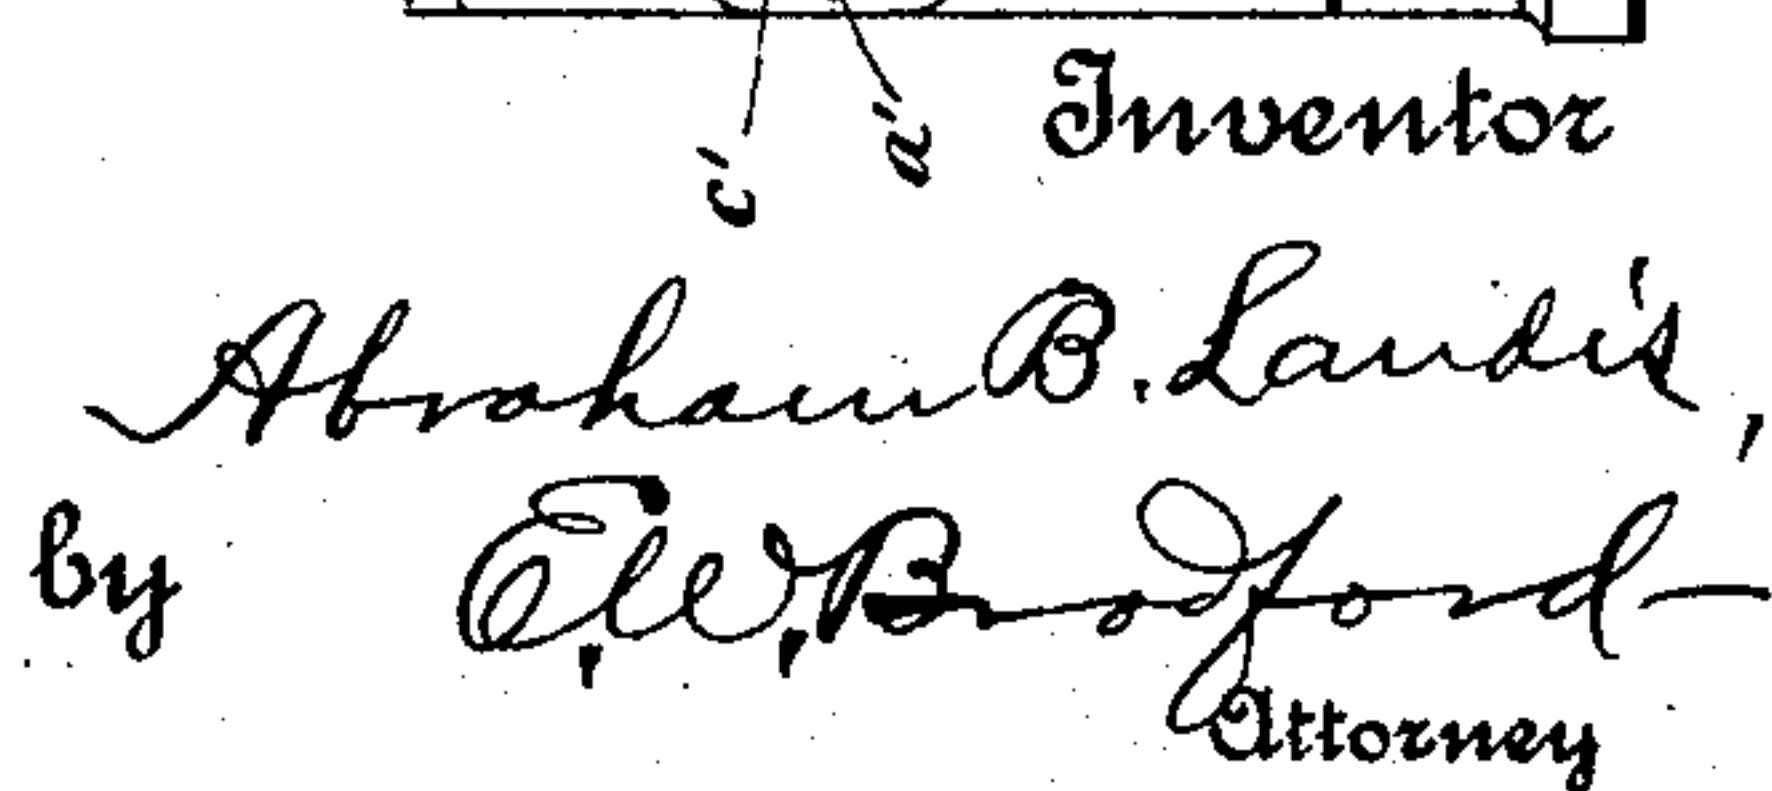 c' a'
Inventor
Abraham B. Landis,
by E. W. Bradford
Attorney